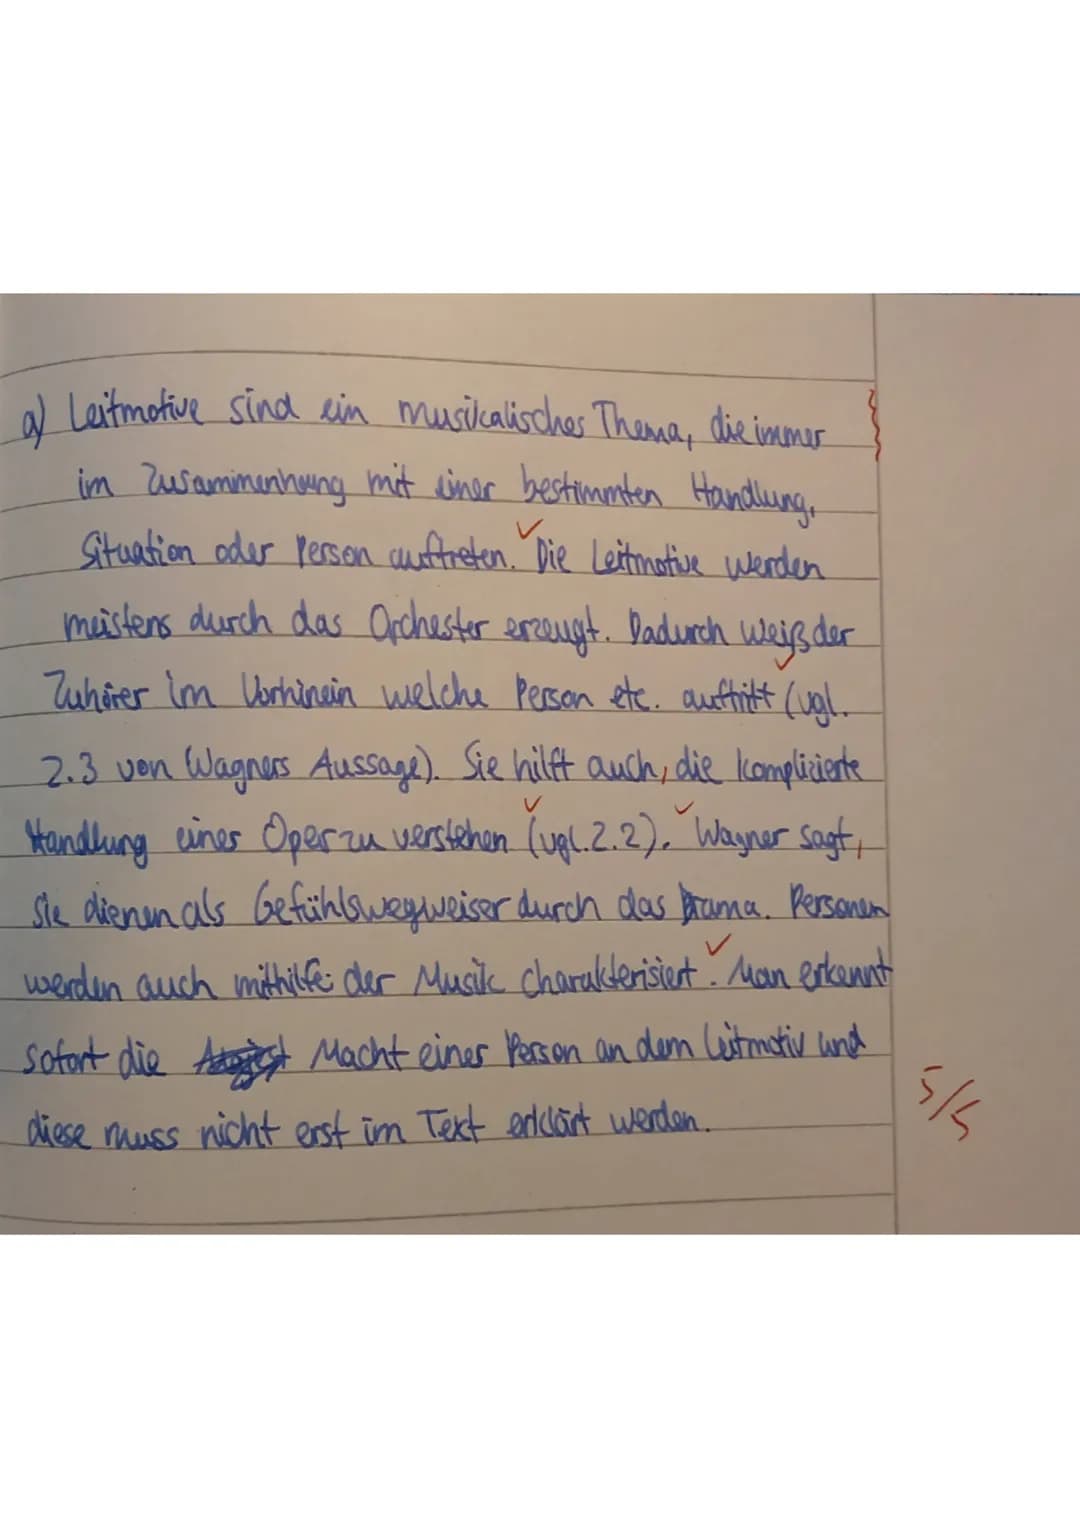 a) Leitmotive sind ein musikalisches Thema, die immer
im Zusammenhang mit einer bestimmten Handlung,
Situation oder Person auftreten. Die Leitmotive werden
meistens durch das Orchester erzeugt. Dadurch weiß der
Zuhörer im Vorhinein welche Person etc. auftritt (vgl.
2.3 von Wagners Aussage). Sie hilft auch, die komplizierte
Handlung einer Oper zu verstehen (vgl. 2.2). Wagner sagt,
sie dienen als Gefühlswegweiser durch das Drama. Personen
werden auch mithilfe der Musik charakterisiert. Man erkennt
sofort die Macht einer Person an dem Leitmotiv und
diese muss nicht erst im Text erklärt werden.
5/5